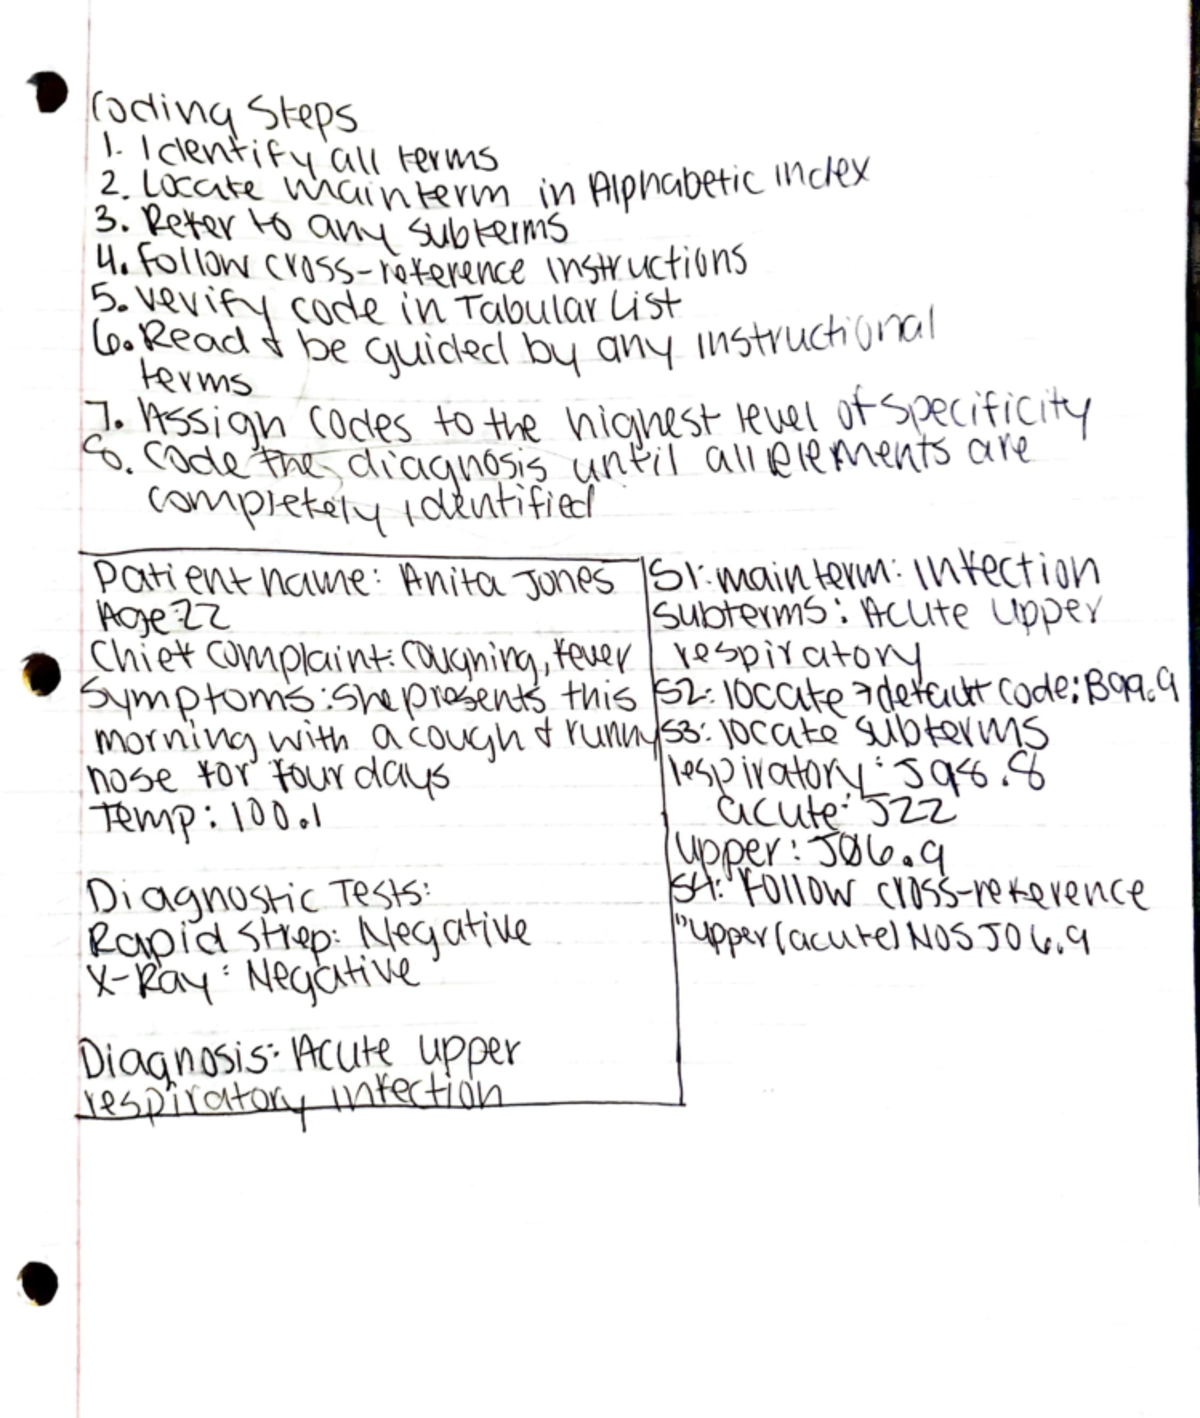 Coding Steps
1. Identify all terms
2. Locate main term in Alphabetic index
3. Refer to any subterms
4. Follow cross-reference instructions
5. Verify code in Tabular List
6. Read & be guided by any instructional
terms
7. Assign codes to the highest level of specificity
8. Code the diagnosis until all elements are
completely identified
Patient name: Anita Jones
Age: 22
Chief complaint: coughing, fever
Symptoms: she presents this
morning with a cough & runny
nose for four days
Temp: 100.1
Diagnostic Tests:
Rapid Strep: Negative
X-Ray: Negative
Diagnosis: Acute upper
respiratory infection
S1: main term: Infection
subterms: Acute Upper
respiratory
S2: locate → default code: B99.9
S3: locate subterms
respiratory: J98.8
acute: J22
upper: J06.9
S4: Follow cross-reference
"upper (acute) NOS J06.9